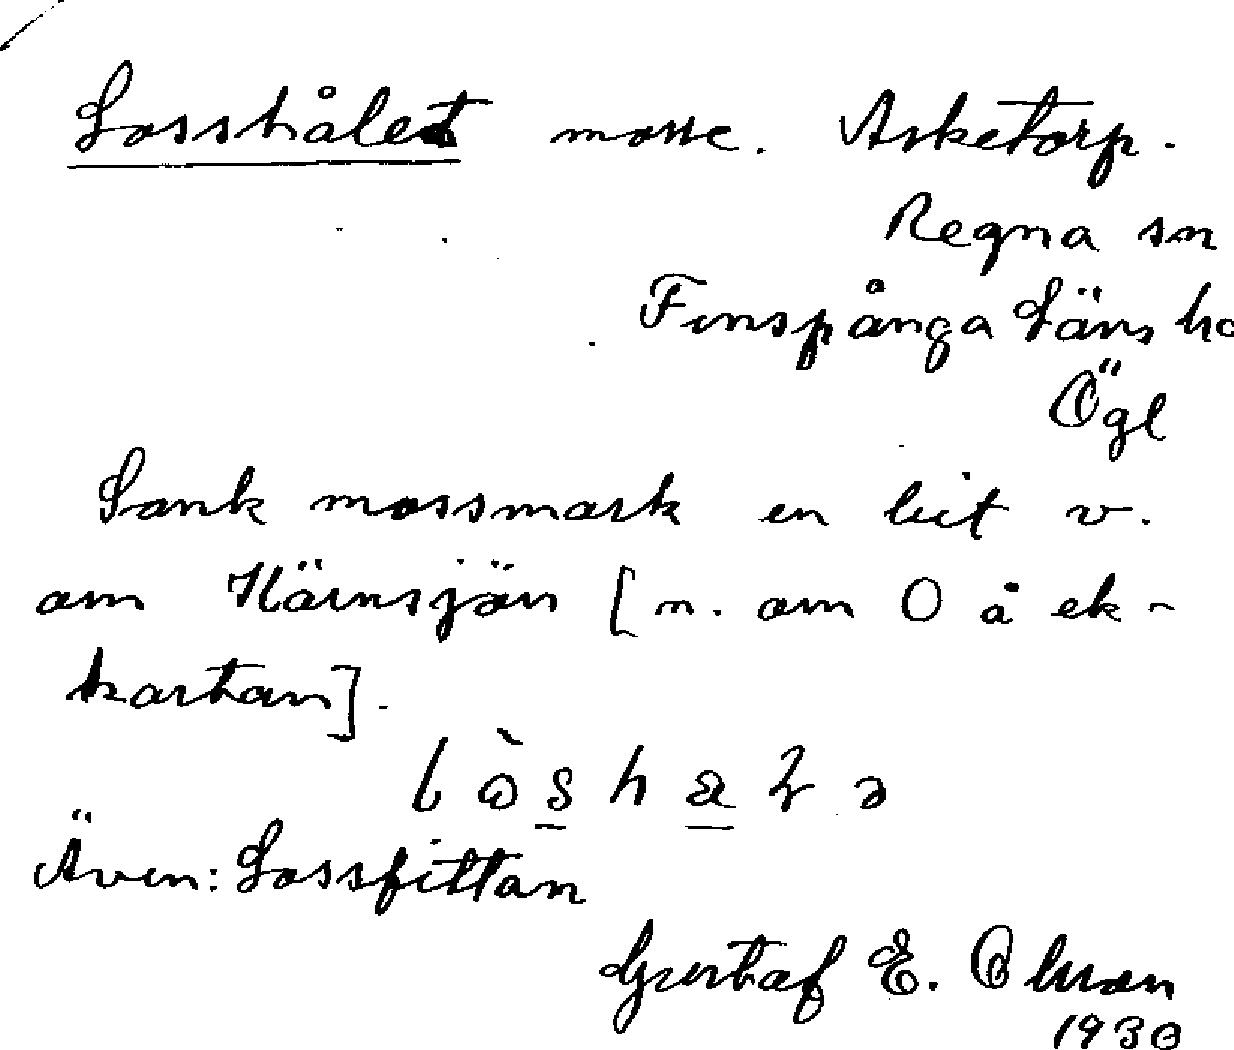 Losshålet mosse. Asketorp.
Regna sn
Finspånga Läns hd
Ögl
Sank mossmark en bit v.
om Härnsjön [n. om O å ek-
kartan].
Även: Lossfittan
Gustaf E. Olson
1930